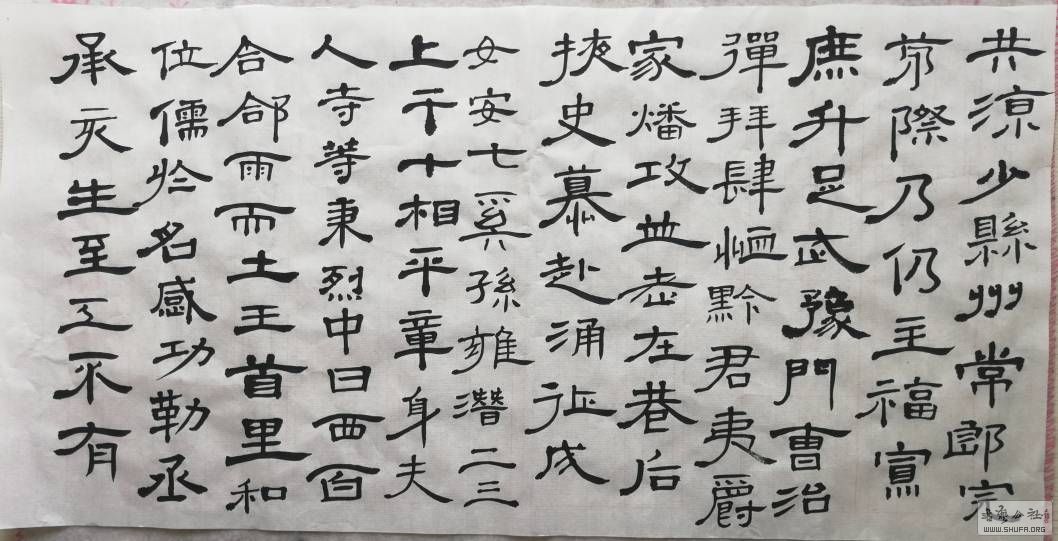 共凉少縣州常郎完
際乃仍主福
庶升足武豫門曹治
彈拜肆恤黔君夷爵
家燔攻並老在巷后
挾史慕赴涌征戍
女安七奚孫雍潛二三
上干十相平章身夫
人寺等秉烈中曰西百
合郃雨而土王首里和
位儒於名感功勒丞
承亥生至工不有
书法公社
WWW.SHUFA.ORG